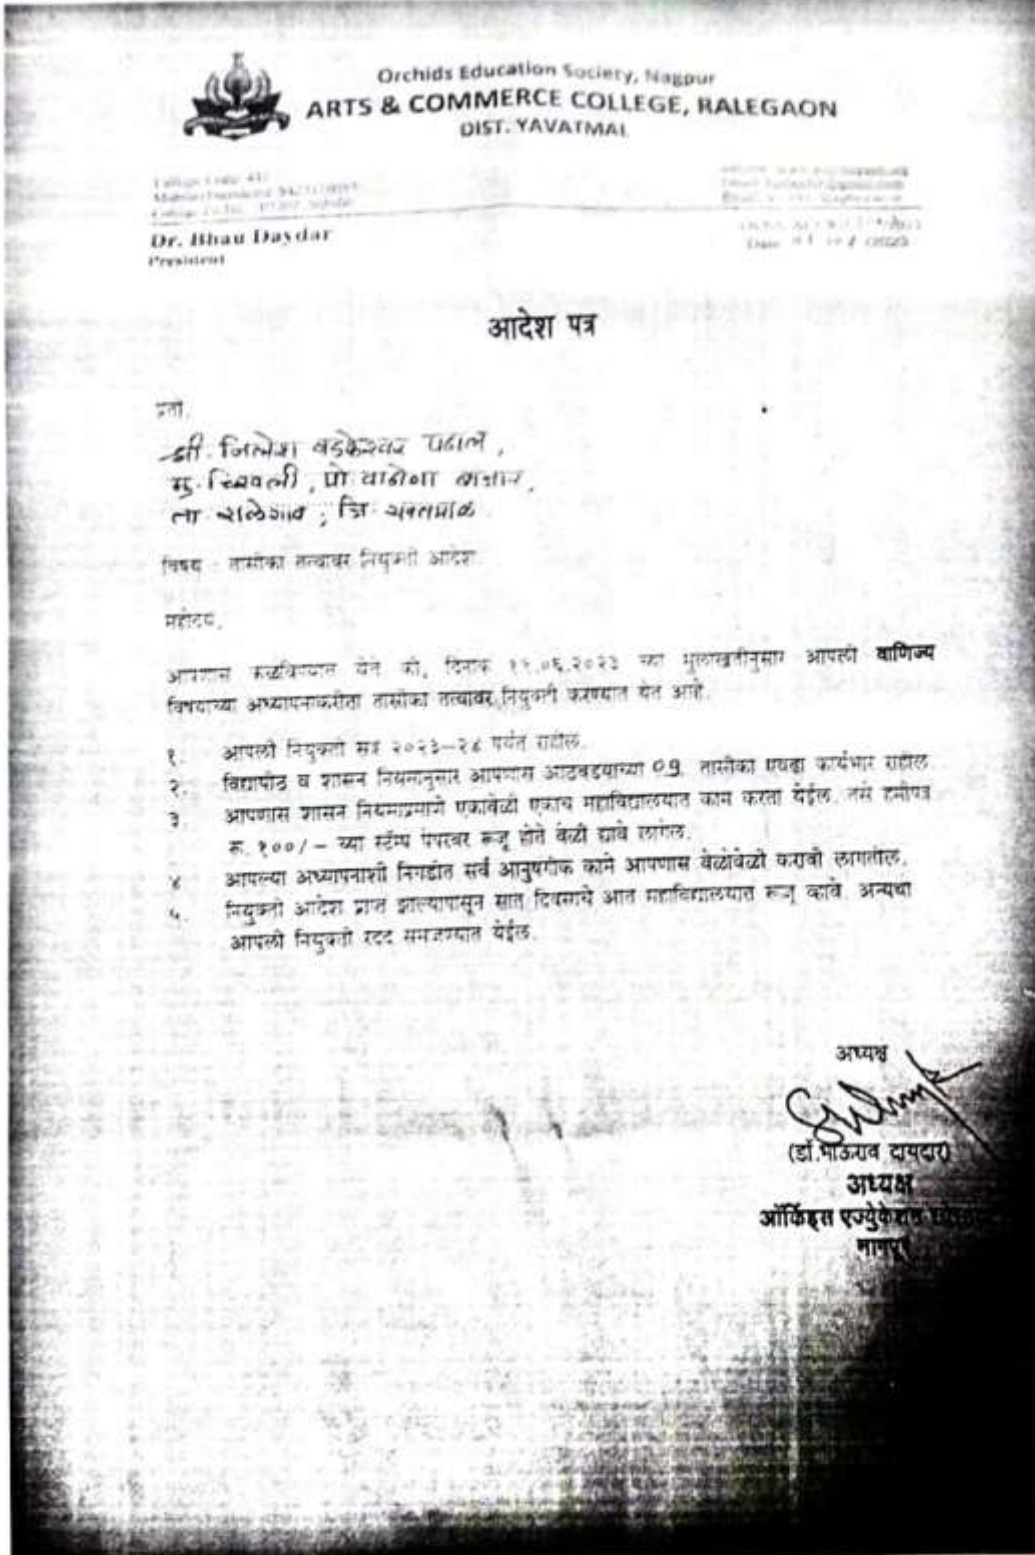 Orchids Education Society, Nagpur
ARTS & COMMERCE COLLEGE, RALEGAON
DIST. YAVATMAL
College Code
Dr. Bhau Daydar
President
Date
आदेश पत्र
प्रती,
श्री.
मु. चिखली, पो.
ता. राळेगाव, जि. यवतमाळ
विषय - तासीका तत्वावर नियुक्ती आदेश.
महोदय,
आपणास कळविण्यात येते की, दिनांक .०६.२०२३ च्या मुलाखतीनुसार आपली वाणिज्य
विषयाच्या अध्यापनाकरीता तासीका तत्वावर नियुक्ती करण्यात येत आहे.
१. आपली नियुक्ती सत्र २०२३-२४ पर्यंत राहील.
२. विद्यापीठ व शासन नियमानुसार आपणास आठवडयाच्या 09 तासीका एवढा कार्यभार राहील
३. आपणास शासन नियमाप्रमाणे एकावेळी एकाच महाविद्यालयात काम करता येईल. तसे हमीपत्र
रू. १००/- च्या स्टॅम्प पेपरवर रूजू होते वेळी द्यावे लागेल.
४ आपल्या अध्यापनाशी निगडीत सर्व आनुषंगीक कामे आपणास वेळोवेळी करावी लागतील.
५. नियुक्ती आदेश प्राप्त झाल्यापासून सात दिवसाचे आत महाविद्यालयात रूजू व्हावे. अन्यथा
आपली नियुक्ती रदद समजण्यात येईल.
अध्यक्ष
(डॉ.भाऊराव दायदार)
अध्यक्ष
ऑर्किड्स एज्युकेशन
नागपूर